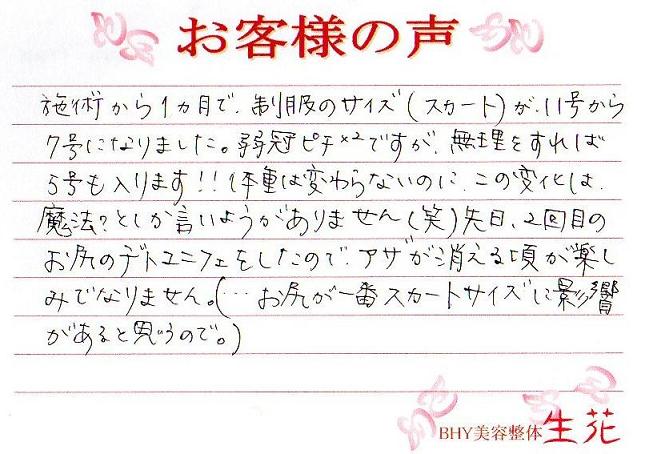 お客様の声
施術から1ヵ月で、制服のサイズ(スカート)が、11号から
7号になりました。弱冠ピチ××ですが、無理をすれば
5号も入ります!!体重は変わらないのに、この変化は、
魔法?としか言いようがありません(笑)先日、2回目の
お尻のデトユニフェをしたので、アザが消える頃が楽し
みでなりません。(…お尻が一番スカートサイズに影響
があると思うので。)
BHY美容整体 生花